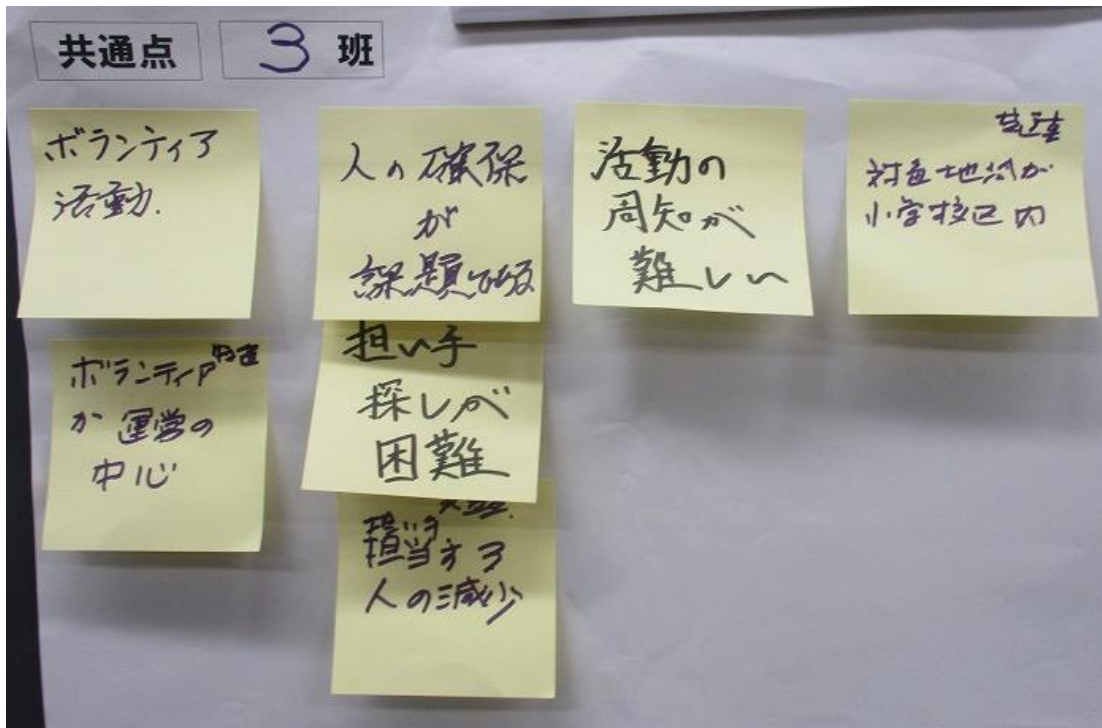 共通点 3 班
ボランティア
活動.
ボランティア
が運営の
中心
人の確保
が
課題である
担い手
探しが
困難
担当する
人の減少
活動の
周知が
難しい
共通点
対象地域が
小学校区内